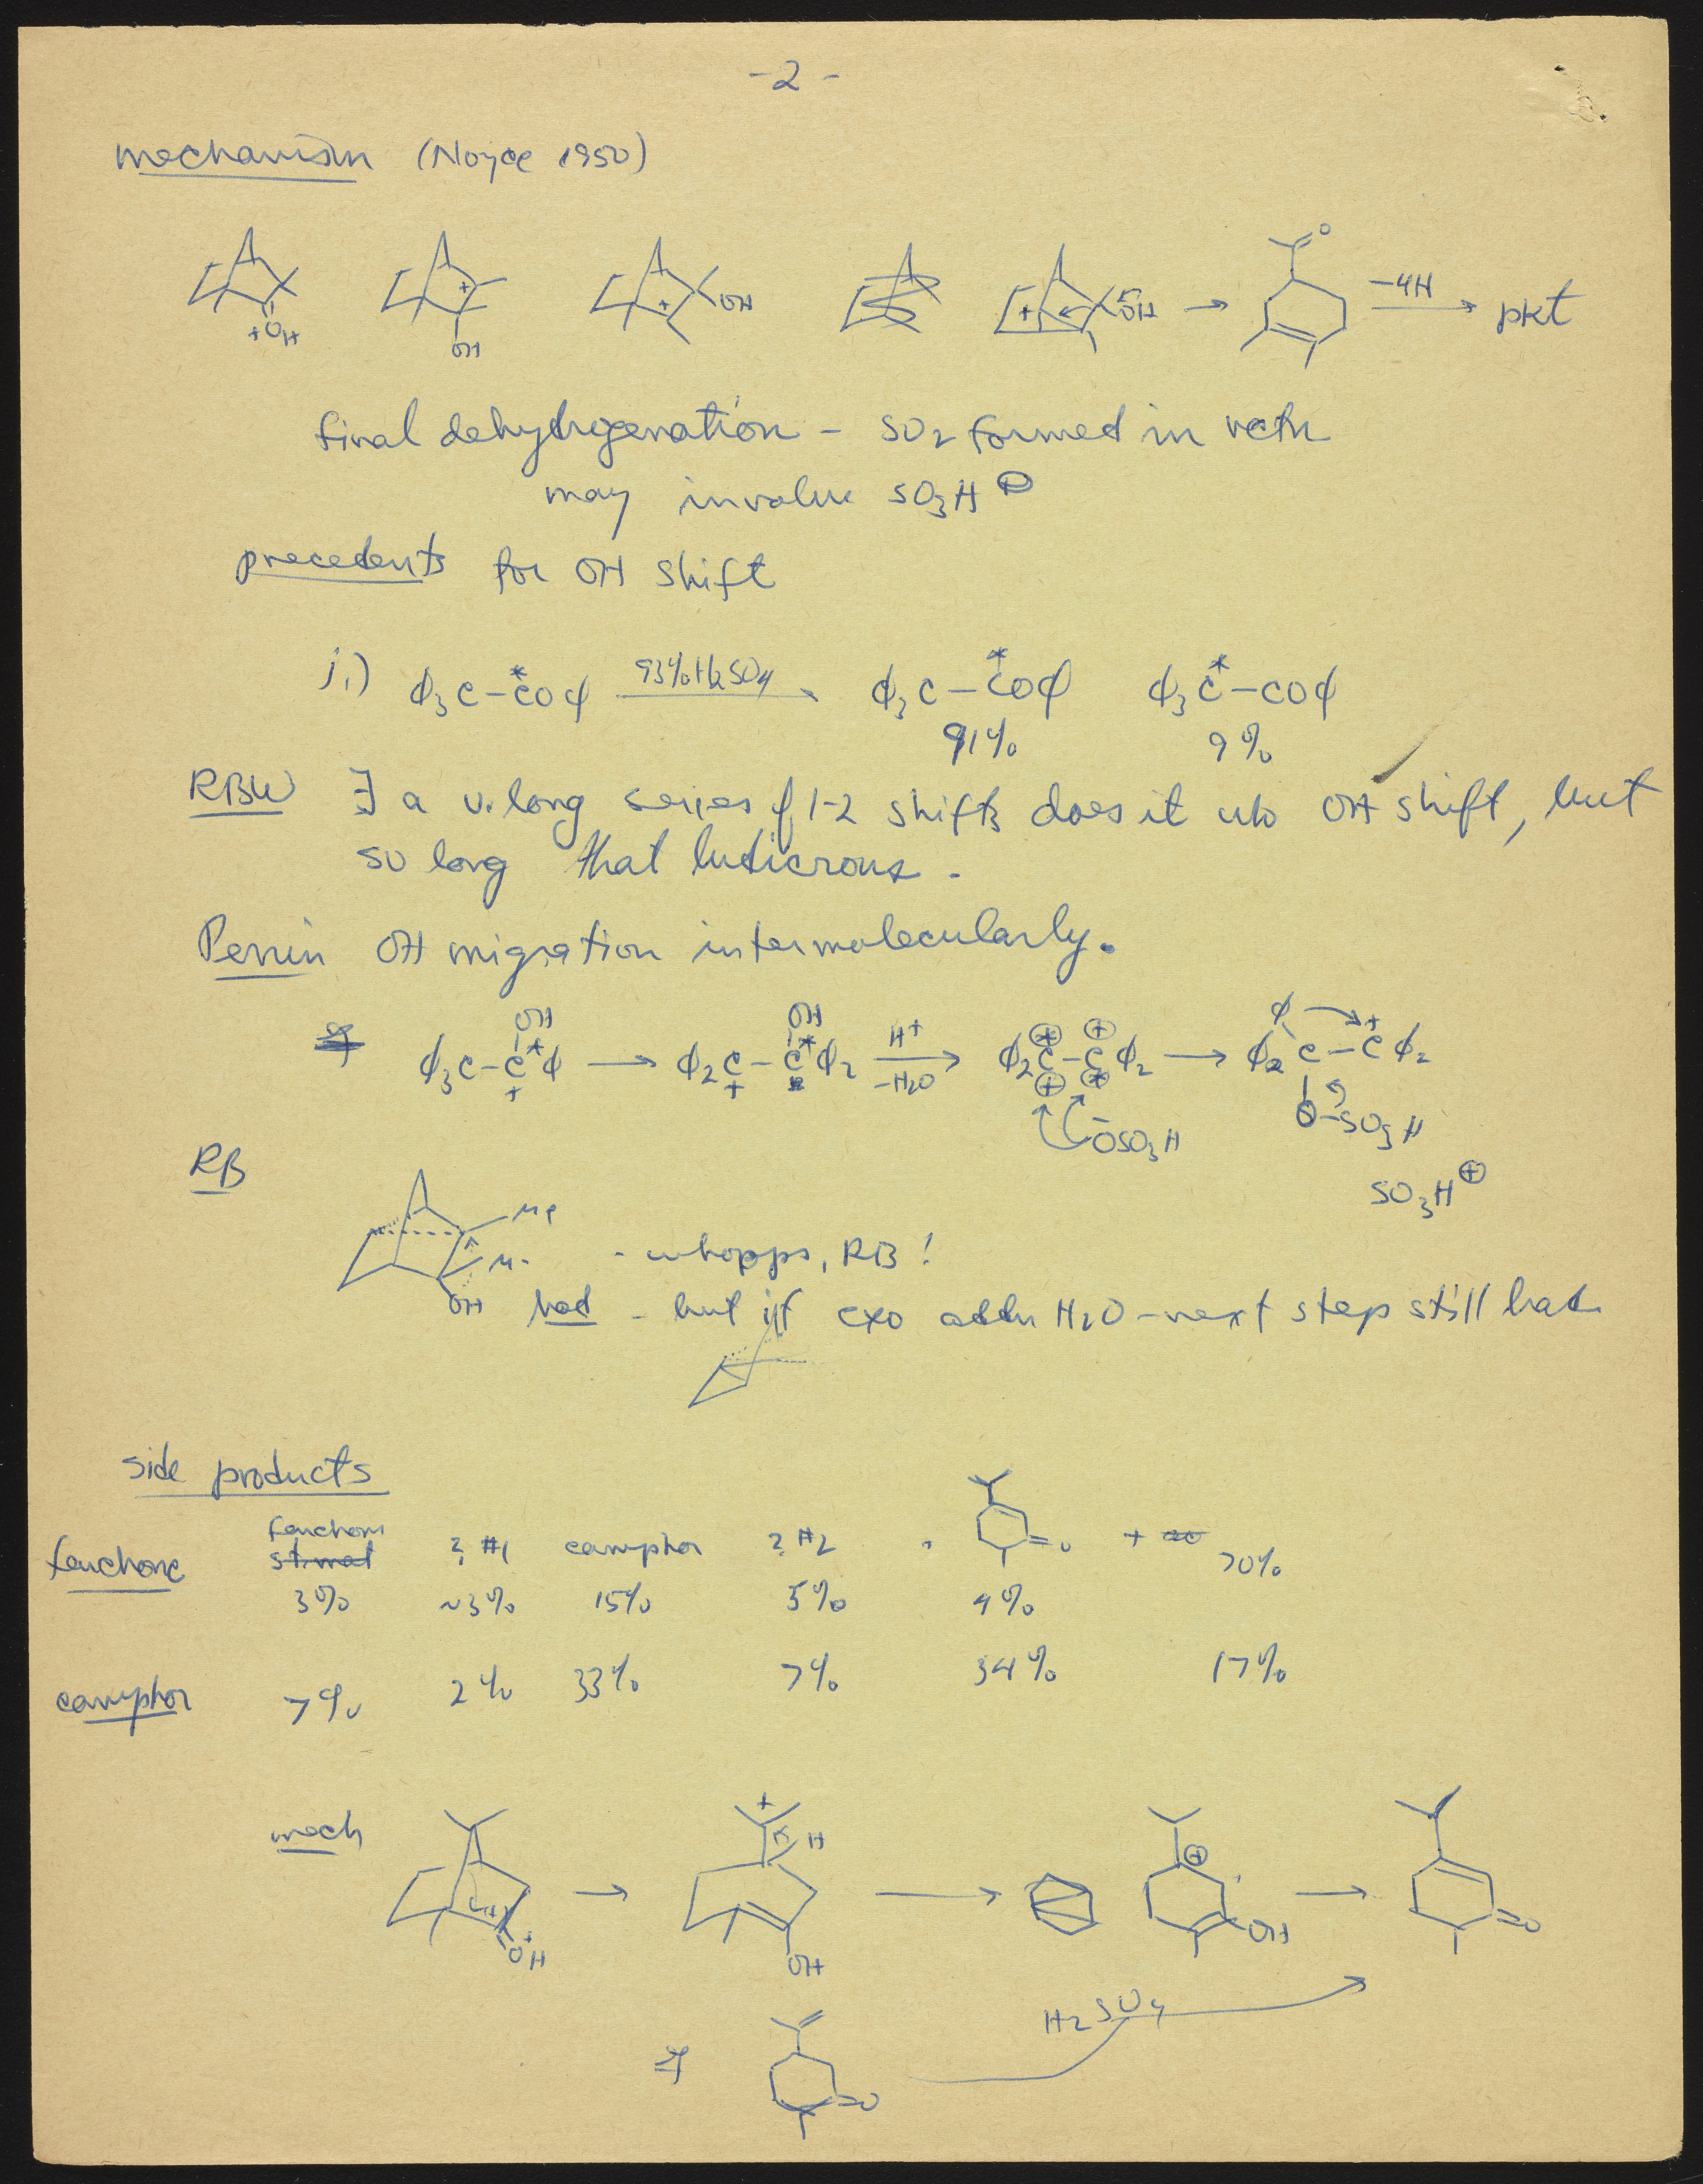 -2-
mechanism (Noyce 1950)
+OH OH OH OH O -4H pkt
final dehydrogenation - SO2 formed in rctn
may involve SO3H ⊕
precedents for OH shift
i.) ϕ3C-*COϕ 93% H2SO4 ϕ3C-*COϕ ϕ3*C-COϕ
91% 9%
RBW ∃ a v. long series of 1-2 shifts does it w/o OH shift, but
so long that ludicrous.
Perrin OH migration intermolecularly.
OH OH ϕ +
ϕ3C-C*ϕ → ϕ2C-C*ϕ2 H+ -H2O ϕ2C-Cϕ2 → ϕ2C-Cϕ2
+ + ⊕ -OSO3H O-SO3H
RB SO3H ⊕
Me
M. - whopps, RB!
OH bad - but if exo addn H2O - next step still bad
side products
fenchone fenchone ? #1 camphor ? #2 O + 70%
3% ~3% 15% 5% 4%
camphor 7% 2% 33% 7% 34% 17%
mech + H ⊕
+OH OH OH O
H2SO4
O